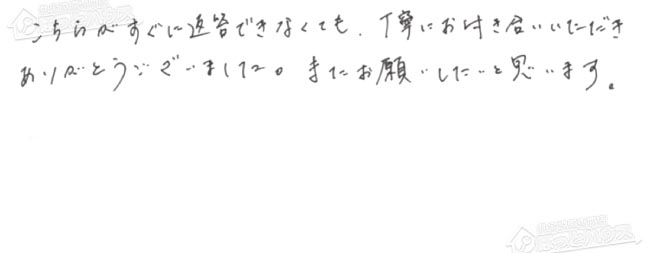 こちらがすぐに返答できなくても、丁寧にお付き合いいただき
ありがとうございました。またお願いしたいと思います。